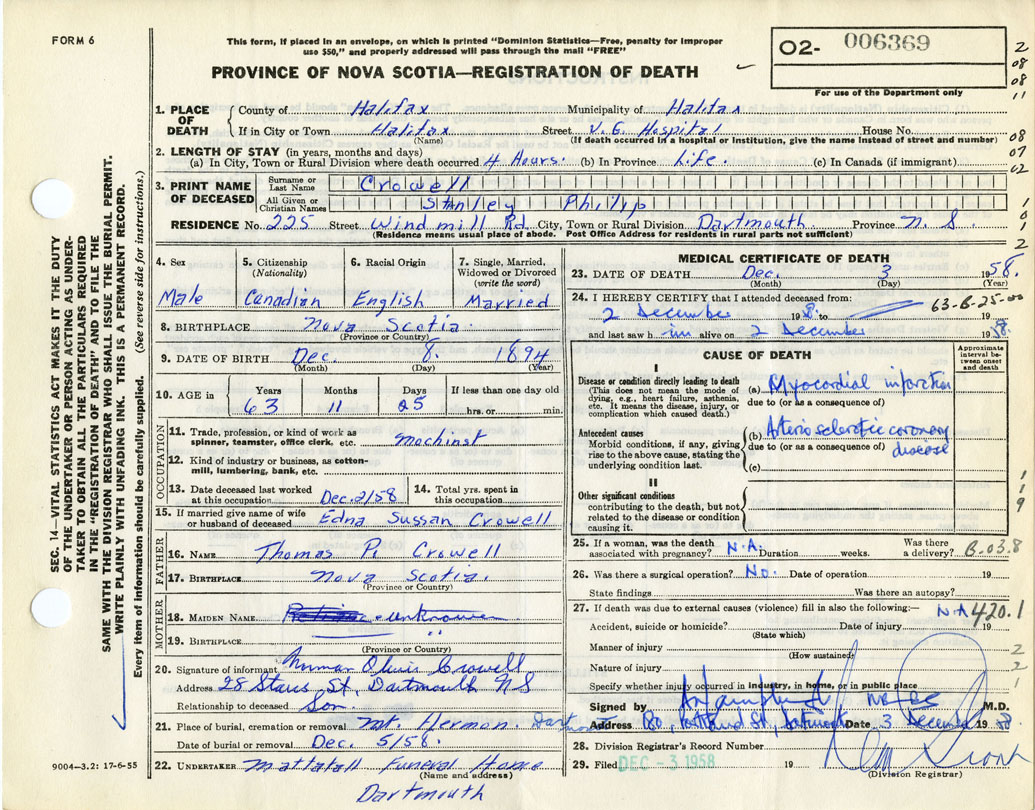 FORM 6
This form, if placed in an envelope, on which is printed "Dominion Statistics—Free, penalty for improper
use $50," and properly addressed will pass through the mail "FREE"
PROVINCE OF NOVA SCOTIA—REGISTRATION OF DEATH
O2- 006369
For use of the Department only
2
08
08
11
1. PLACE OF DEATH County of Halifax Municipality of Halifax
If in City or Town Halifax Street V. G. Hospital House No.
(Name) (If death occurred in a hospital or institution, give the name instead of street and number)
08
2. LENGTH OF STAY (in years, months and days)
07
(a) In City, Town or Rural Division where death occurred 4 Hours. (b) In Province Life. (c) In Canada (if immigrant)
02
3. PRINT NAME OF DECEASED
Surname or Last Name Crowell
All Given or Christian Names Stanley Philip
RESIDENCE No. 225 Street Windmill Rd City, Town or Rural Division Dartmouth Province N. S.
(Residence means usual place of abode. Post Office Address for residents in rural parts not sufficient)
SEC. 14—VITAL STATISTICS ACT MAKES IT THE DUTY
OF THE UNDERTAKER OR PERSON ACTING AS UNDER-
TAKER TO OBTAIN ALL THE PARTICULARS REQUIRED
IN THE "REGISTRATION OF DEATH" AND TO FILE THE
SAME WITH THE DIVISION REGISTRAR WHO SHALL ISSUE THE BURIAL PERMIT.
WRITE PLAINLY WITH UNFADING INK. THIS IS A PERMANENT RECORD.
Every item of Information should be carefully supplied. (See reverse side for instructions.)
4. Sex
Male
5. Citizenship
(Nationality)
Canadian
6. Racial Origin
English
7. Single, Married,
Widowed or Divorced
(write the word)
Married
8. BIRTHPLACE Nova Scotia.
(Province or Country)
9. DATE OF BIRTH Dec. 8. 1894
(Month) (Day) (Year)
10. AGE in
Years Months Days If less than one day old
63 11 25 hrs. or min.
OCCUPATION
11. Trade, profession, or kind of work as
spinner, teamster, office clerk, etc. Machinst
12. Kind of industry or business, as cotton-
mill, lumbering, bank, etc.
13. Date deceased last worked
at this occupation Dec. 2/58
14. Total yrs. spent in
this occupation
15. If married give name of wife
or husband of deceased Edna Sussan Crowell
FATHER
16. NAME Thomas P. Crowell
17. BIRTHPLACE Nova Scotia.
(Province or Country)
MOTHER
18. MAIDEN NAME unknown
19. BIRTHPLACE "
(Province or Country)
20. Signature of informant Crowell
Address 28 St, Dartmouth N S
Relationship to deceased Son.
21. Place of burial, cremation or removal Mt. Hermon. Dartmouth
Date of burial or removal Dec. 5/58.
22. UNDERTAKER Mattatall Funeral Home
(Name and address)
Dartmouth
9004—3.2: 17-6-55
MEDICAL CERTIFICATE OF DEATH
23. DATE OF DEATH Dec. 3 1958.
(Month) (Day) (Year)
24. I HEREBY CERTIFY that I attended deceased from: 63-B-25-00
2 December 1958. to
and last saw him alive on 2 December 1958.
CAUSE OF DEATH
Approximate
interval be-
tween onset
and death
I
Disease or condition directly leading to death
(This does not mean the mode of
dying, e.g., heart failure, asthenia,
etc. It means the disease, injury, or
complication which caused death.)
(a) Myocardial infarction
due to (or as a consequence of)
Antecedent causes
Morbid conditions, if any, giving
rise to the above cause, stating the
underlying condition last.
(b) Arteriosclerotic coronary
due to (or as a consequence of) disease
(c)
II
Other significant conditions
contributing to the death, but not
related to the disease or condition
causing it.
1
1
9
25. If a woman, was the death
associated with pregnancy? N.A. Duration weeks. Was there
a delivery? B.03.8
26. Was there a surgical operation? No. Date of operation 19
State findings Was there an autopsy?
27. If death was due to external causes (violence) fill in also the following:— N.A 420.1
Accident, suicide or homicide? Date of injury 19
(State which)
Manner of injury
(How sustained)
Nature of injury
Specify whether injury occurred in industry, in home, or in public place
2
2
1
Signed by M.D.
Address Date 3 December 1958
28. Division Registrar's Record Number
29. Filed DEC - 3 1958 19
(Division Registrar)